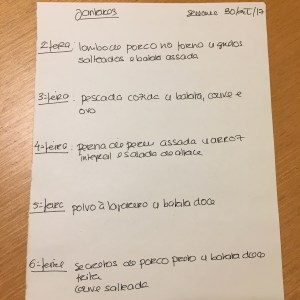 Jantares semana 30/out/17
2ªfeira lombo de porco no forno c/ grelos
salteados e batata assada
3ªfeira: pescada cozida c/ batata, couve e
ovo
4ªfeira: perna de peru assada c/ arroz
integral e salada de alface
5ªfeira: polvo à lagareiro c/ batata doce
6ªfeira: secretos de porco preto c/ batata doce
frita
couve salteada